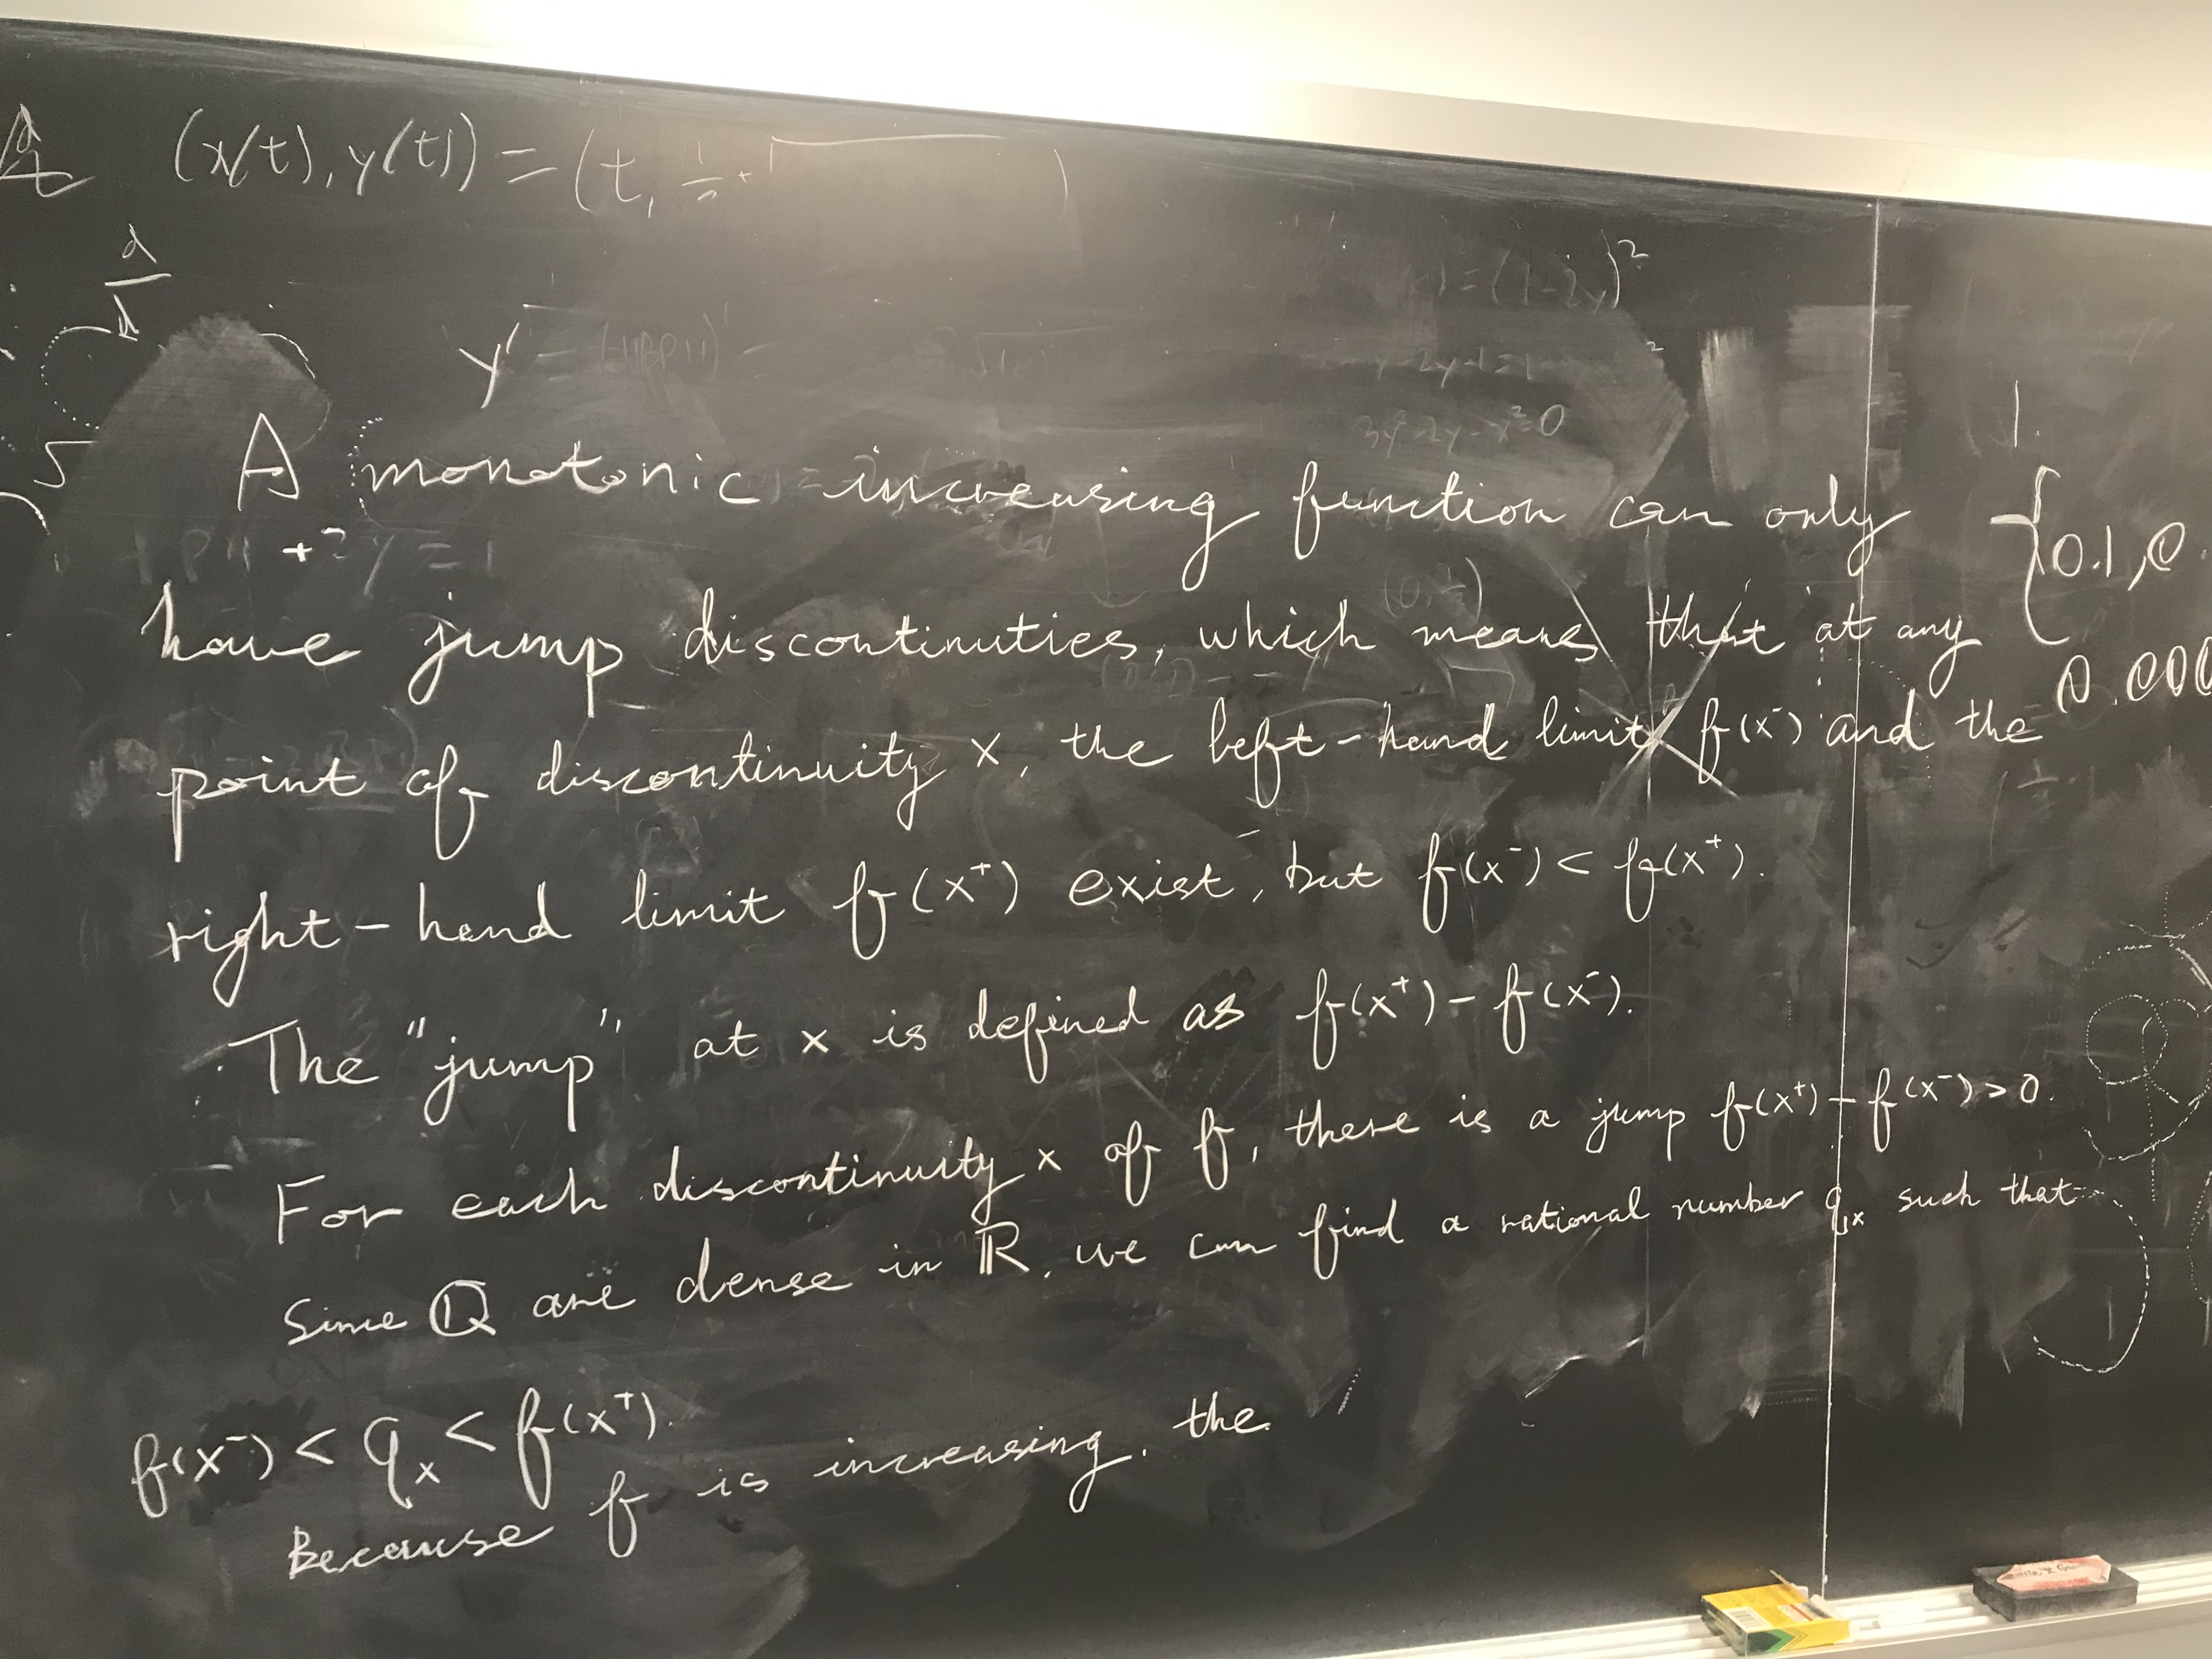 (x(t), y(t)) = (t,
)²
y'
3y²-2y-x²=0
1.
A monotonic increasing function can only
{0.1, 0.
+2y=1
have jump discontinuties, which means that at any
0.000
point of discontinuity x, the left-hand limit f(x⁻) and the
right-hand limit f(x⁺) exist, but f(x⁻) < f(x⁺).
The "jump" at x is defined as f(x⁺) - f(x⁻).
For each discontinuity x of f, there is a jump f(x⁺) - f(x⁻) > 0.
Since ℚ are dense in ℝ, we can find a rational number qₓ such that
f(x⁻) < qₓ < f(x⁺).
Because f is increasing, the